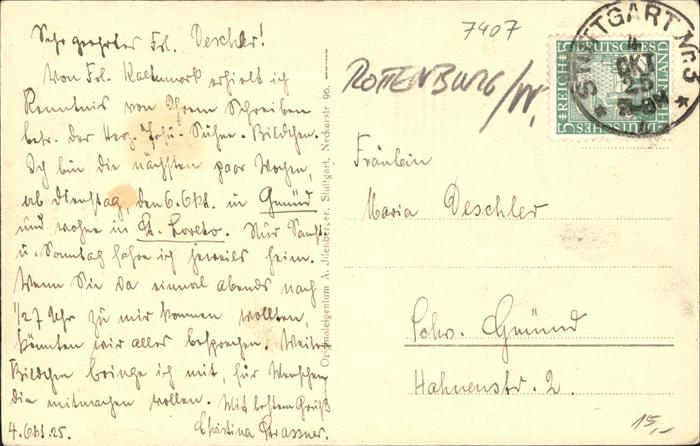 Sehr geehrtes Frl. Deschler!
Von Frl. Kaltenmark erhielt ich
Kenntnis von Ihrem Schreiben
betr. der Herz-Jesu-Sühne-Bildchen.
Ich bin die nächsten paar Wochen,
ab Dienstag, den 6. Okt. in Gmünd
und wohne in St. Loreto. Nur Samst.
u. Sonntag fahre ich jeweils heim.
Wenn Sie da einmal abends nach
1/27 Uhr zu mir kommen wollten,
könnten wir alles besprechen. Weitere
Bildchen bringe ich mit, für Menschen
die mitmachen wollen. Mit bestem Gruß
4. Okt. 25. Christina Strassner.
Originaleigentum A. Jllenberger, Stuttgart, Neckarstr 96.
7407
ROTTENBURG/W,
STUTTGART Nr. 3
4
OKT
25
DEUTSCHES REICH
5
Fräulein
Maria Deschler
Schw. Gmünd
Hahnenstr. 2.
15,-